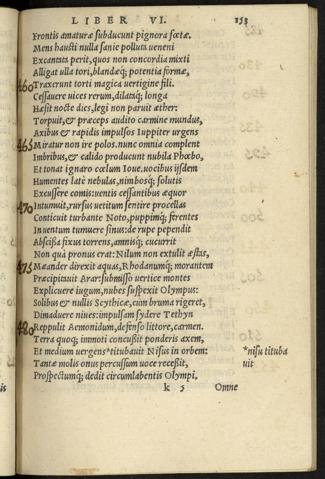 LIBER VI. 153
Frontis amaturæ subducunt pignora fœtæ.
Mens hausti nulla sanie polluta ueneni
Excantata perit, quos non concordia mixti
Alligat ulla tori, blandæq; potentia formæ,
460 Traxerunt torti magica uertigine fili.
Cessauere uices rerum, dilataq; longa
Hæsit nocte dies, legi non paruit æther:
Torpuit, & præceps audito carmine mundus,
Axibus & rapidis impulsos Iuppiter urgens
465 Miratur non ire polos. nunc omnia complent
Imbribus, & calido producunt nubila Phœbo,
Et tonat ignaro cœlum Ioue. uocibus ijsdem
Humentes late nebulas, nimbosq; solutis
Excussere comis: uentis cessantibus æquor
470 Intumuit, rursus uetitum sentire procellas
Conticuit turbante Noto, puppimq; ferentes
In uentum tumuere sinus: de rupe pependit
Abscissa fixus torrens, amnisq; cucurrit
Non qua pronus erat: Nilum non extulit æstas,
475 Mæander direxit aquas, Rhodanumq; morantem
Præcipitauit Arar: submisso uertice montes
Explicuere iugum, nubes suspexit Olympus:
Solibus & nullis Scythicæ, cum bruma rigeret,
Dimaduere niues: impulsam sydere Tethyn
480 Reppulit Aemonidum, defenso littore, carmen.
Terra quoq; immoti concussit ponderis axem,
Et medium uergens *titubauit Nisus in orbem: *nisu tituba
Tantæ molis onus percussum uoce recessit, uit
Prospectumq; dedit circumlabentis Olympi.
k 5 Omne